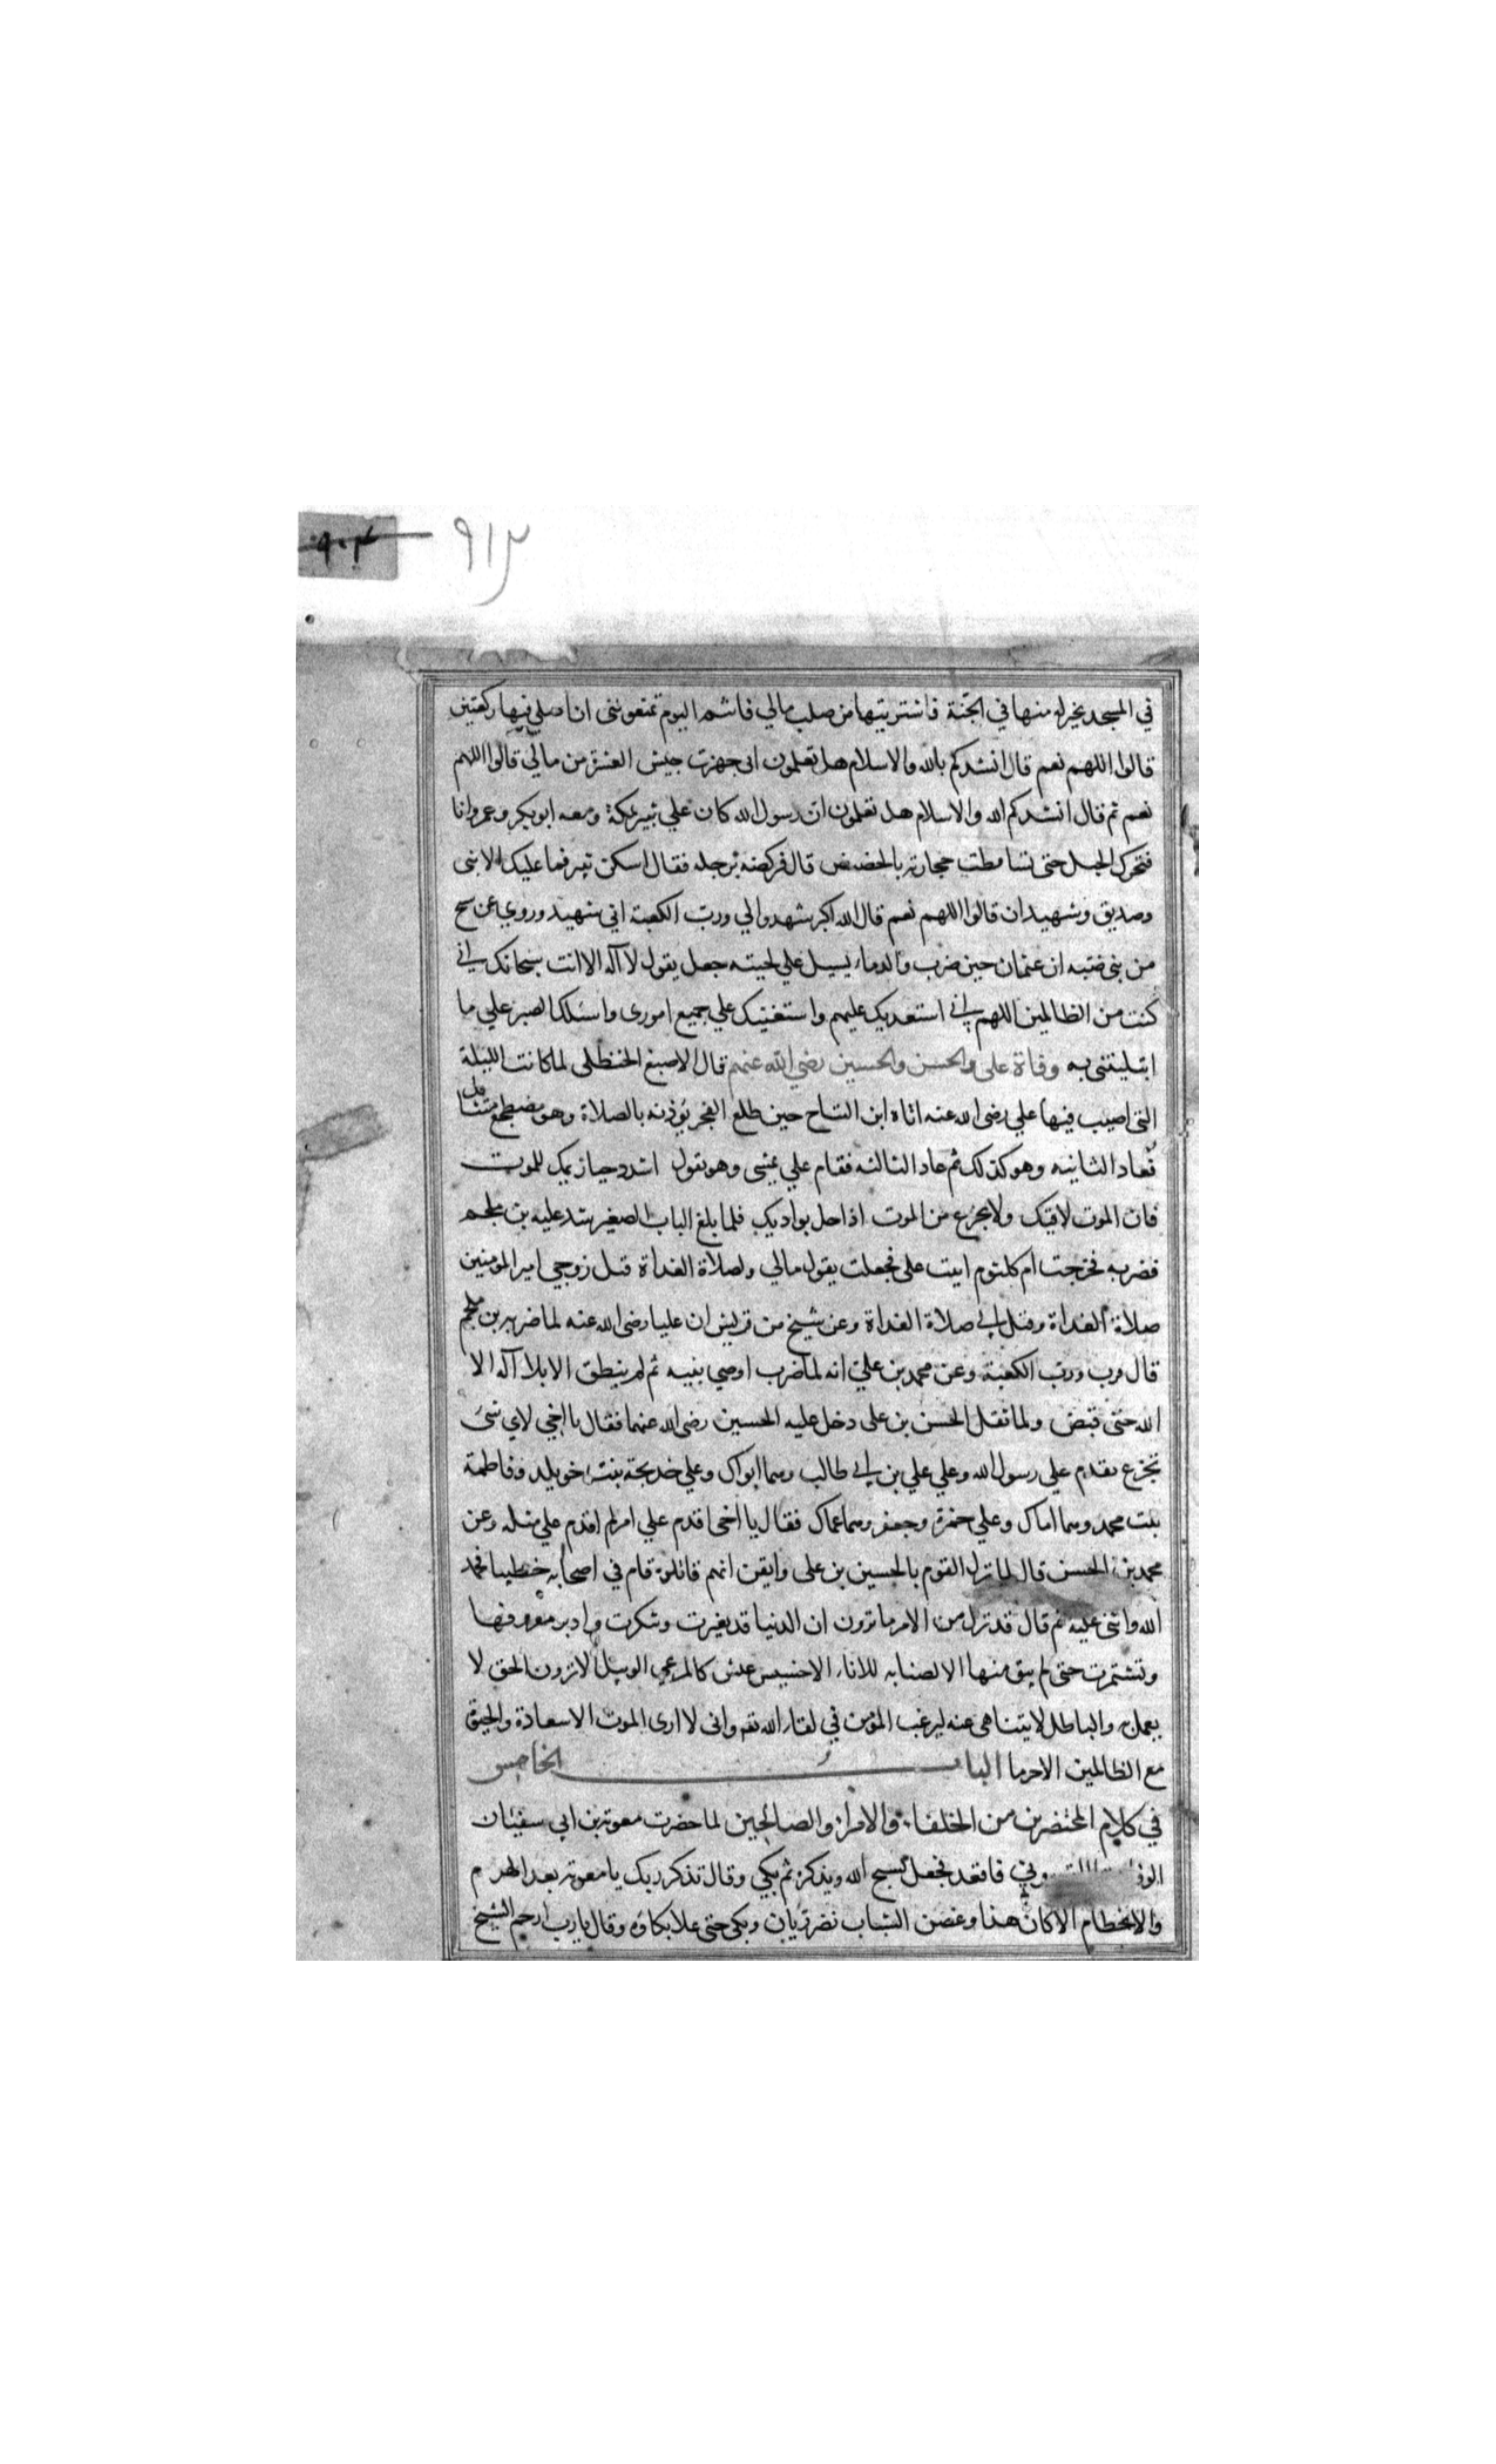 ٩٠٤ ٩١٣
في المسجد بخير له منها في الجنة فاشتريتها من صلب مالي فانتم اليوم تمنعونني ان اصلي فيها ركعتين
قالوا اللهم نعم قال انشدكم بالله والاسلام هل تعلمون انى جهزت جيش العسرة من مالي قالوا اللهم
نعم ثم قال انشدكم الله والاسلام هل تعلمون ان رسول الله كان علي ثبير بمكة ومعه ابو بكر وعمر وانا
فتحرك الجبل حتى تساقطت حجارته بالحضيض قال فركضه برجله فقال اسكن ثبير فما عليك الا نبى
وصديق وشهيدان قالوا اللهم نعم قال الله اكبر شهدوا لي ورب الكعبة اني شهيد وروي عن شيخ
من بنى ضبه ان عثمان حين ضرب والدماء يسيل علي لحيته جعل يقول لا اله الا انت سبحانك اني
كنت من الظالمين اللهم اني استعديك عليهم واستعينك علي جميع امورى واسئلك الصبر علي ما
ابتليتنى به وفاة على والحسن والحسين رضي الله عنهم قال الاصبغ الحنظلى لما كانت الليلة
التى اصيب فيها علي رضى الله عنه اتاه ابن التياح حين طلع الفجر يؤذنه بالصلاة وهو مضطجع متثاقل
فعاد الثانيه وهو كذلك ثم عاد الثالثه فقام علي يمشى وهو يقول اشدد حيازيمك للموت
فان الموت لاقيك ولا تجزع من الموت اذا حل بواديك فلما بلغ الباب الصغير شد عليه بن ملجم
فضربه فخرجت ام كلثوم ابنت على فجعلت يقول مالي ولصلاة الغداة قتل زوجي امير المومنين
صلاة الغداة وقتل ابي صلاة الغداة وعن شيخ من قريش ان عليا رضى الله عنه لما ضربه بن ملجم
قال فزت ورب الكعبة وعن محمد بن علي انه لما ضرب اوصي بنيه ثم لم ينطق الا بلا اله الا
الله حتى قبض ولما ثقل الحسن بن على دخل عليه الحسين رضى الله عنهما فقال يا اخي لاي شئ
تجزع تقدم علي رسول الله وعلي علي بن ابي طالب وهما ابواك وعلي خديجة بنت خويلد وفاطمة
بنت محمد وهما اماك وعلي حمزة وجعفر وهما عماك فقال يا اخى اقدم علي امر لم اقدم علي مثله وعن
محمد بن الحسن قال لما نزل القوم بالحسين بن على وايقن انهم قاتلوه قام في اصحابه خطيبا فحمد
الله واثنى عليه ثم قال قد نزل من الامر ما ترون ان الدنيا قد تغيرت وتنكرت وادبر معروفها
وتشمرت حتى لم يبق منها الا لصبابه للاناء الا خسيس عيش كالمرعي الوبيل الا ترون الحق لا
يعمل به والباطل لا يتناهى عنه ليرغب المؤمن في لقاء الله تعه وانى لا ارى الموت الا سعادة والحيق
مع الظالمين الا حرما الباب الخامس
في كلام المحتضرين من الخلفاء والامراء والصالحين لما حضرت معوية بن ابي سفيان
الوفا فاقعد فجعل يسبح الله ويذكره ثم بكي وقال تذكر ربك يا معوية بعد الهرم
والانحطام الا كان هذا وغصن الشباب نضر ريان وبكى حتى علا بكاؤه وقال يا رب ارحم الشيخ